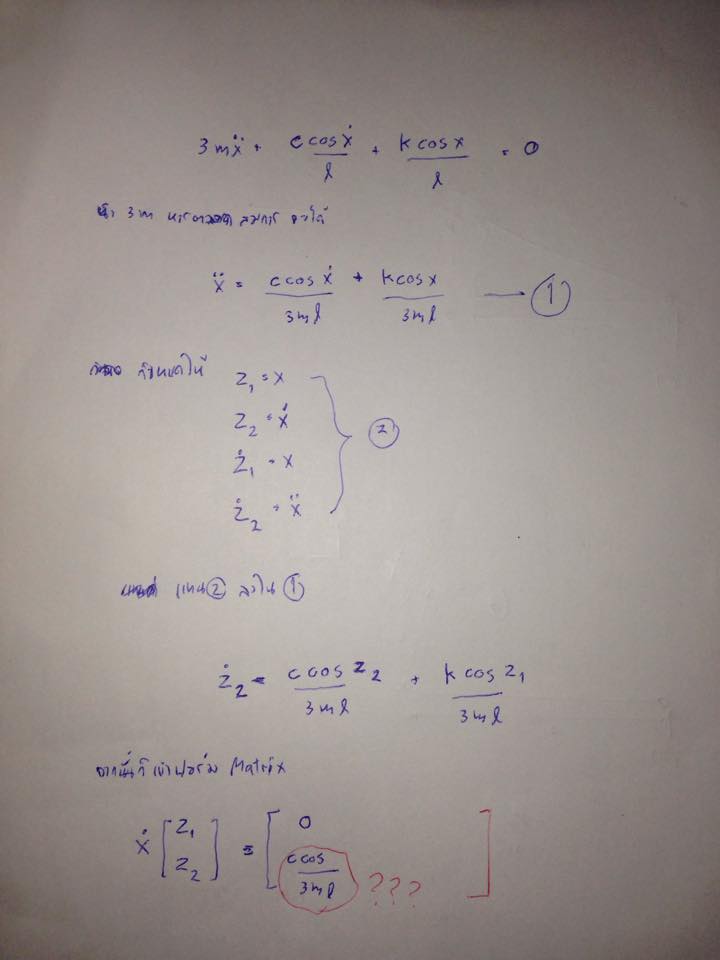 3mẍ + c cos ẋ / l + k cos x / l = 0
3m สมการ จะได้
ẍ = c cos ẋ / 3ml + k cos x / 3ml → ①
กำหนดให้
z₁ = x
z₂ = ẋ
ż₁ = x
ż₂ = ẍ
②
แทน ② ลงใน ①
ż₂ = c cos z₂ / 3ml + k cos z₁ / 3ml
จากนั้นก็เข้าฟอร์ม Matrix
ẋ [ z₁ z₂ ] = [ 0 c cos / 3ml ??? ]